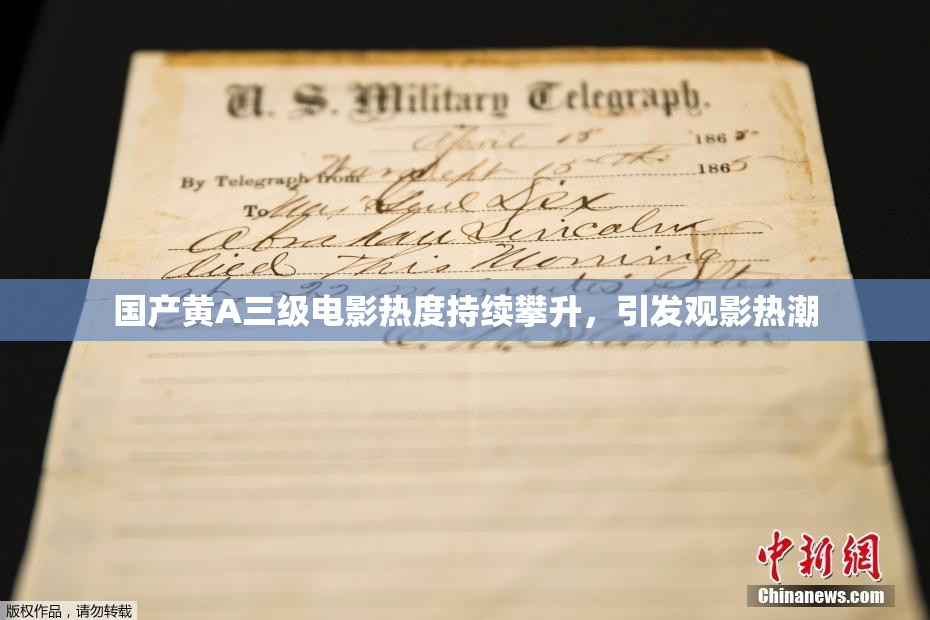 U. S. Military Telegraph.
April 15 1865
By Telegraph from War Dept 15th 1865
To Maj Genl Dix
Abraham Lincoln
died This Morning
at 22 minutes after
国产黄A三级电影热度持续攀升，引发观影热潮
E. M. Stanton
中新网
Chinanews.com
版权作品，请勿转载